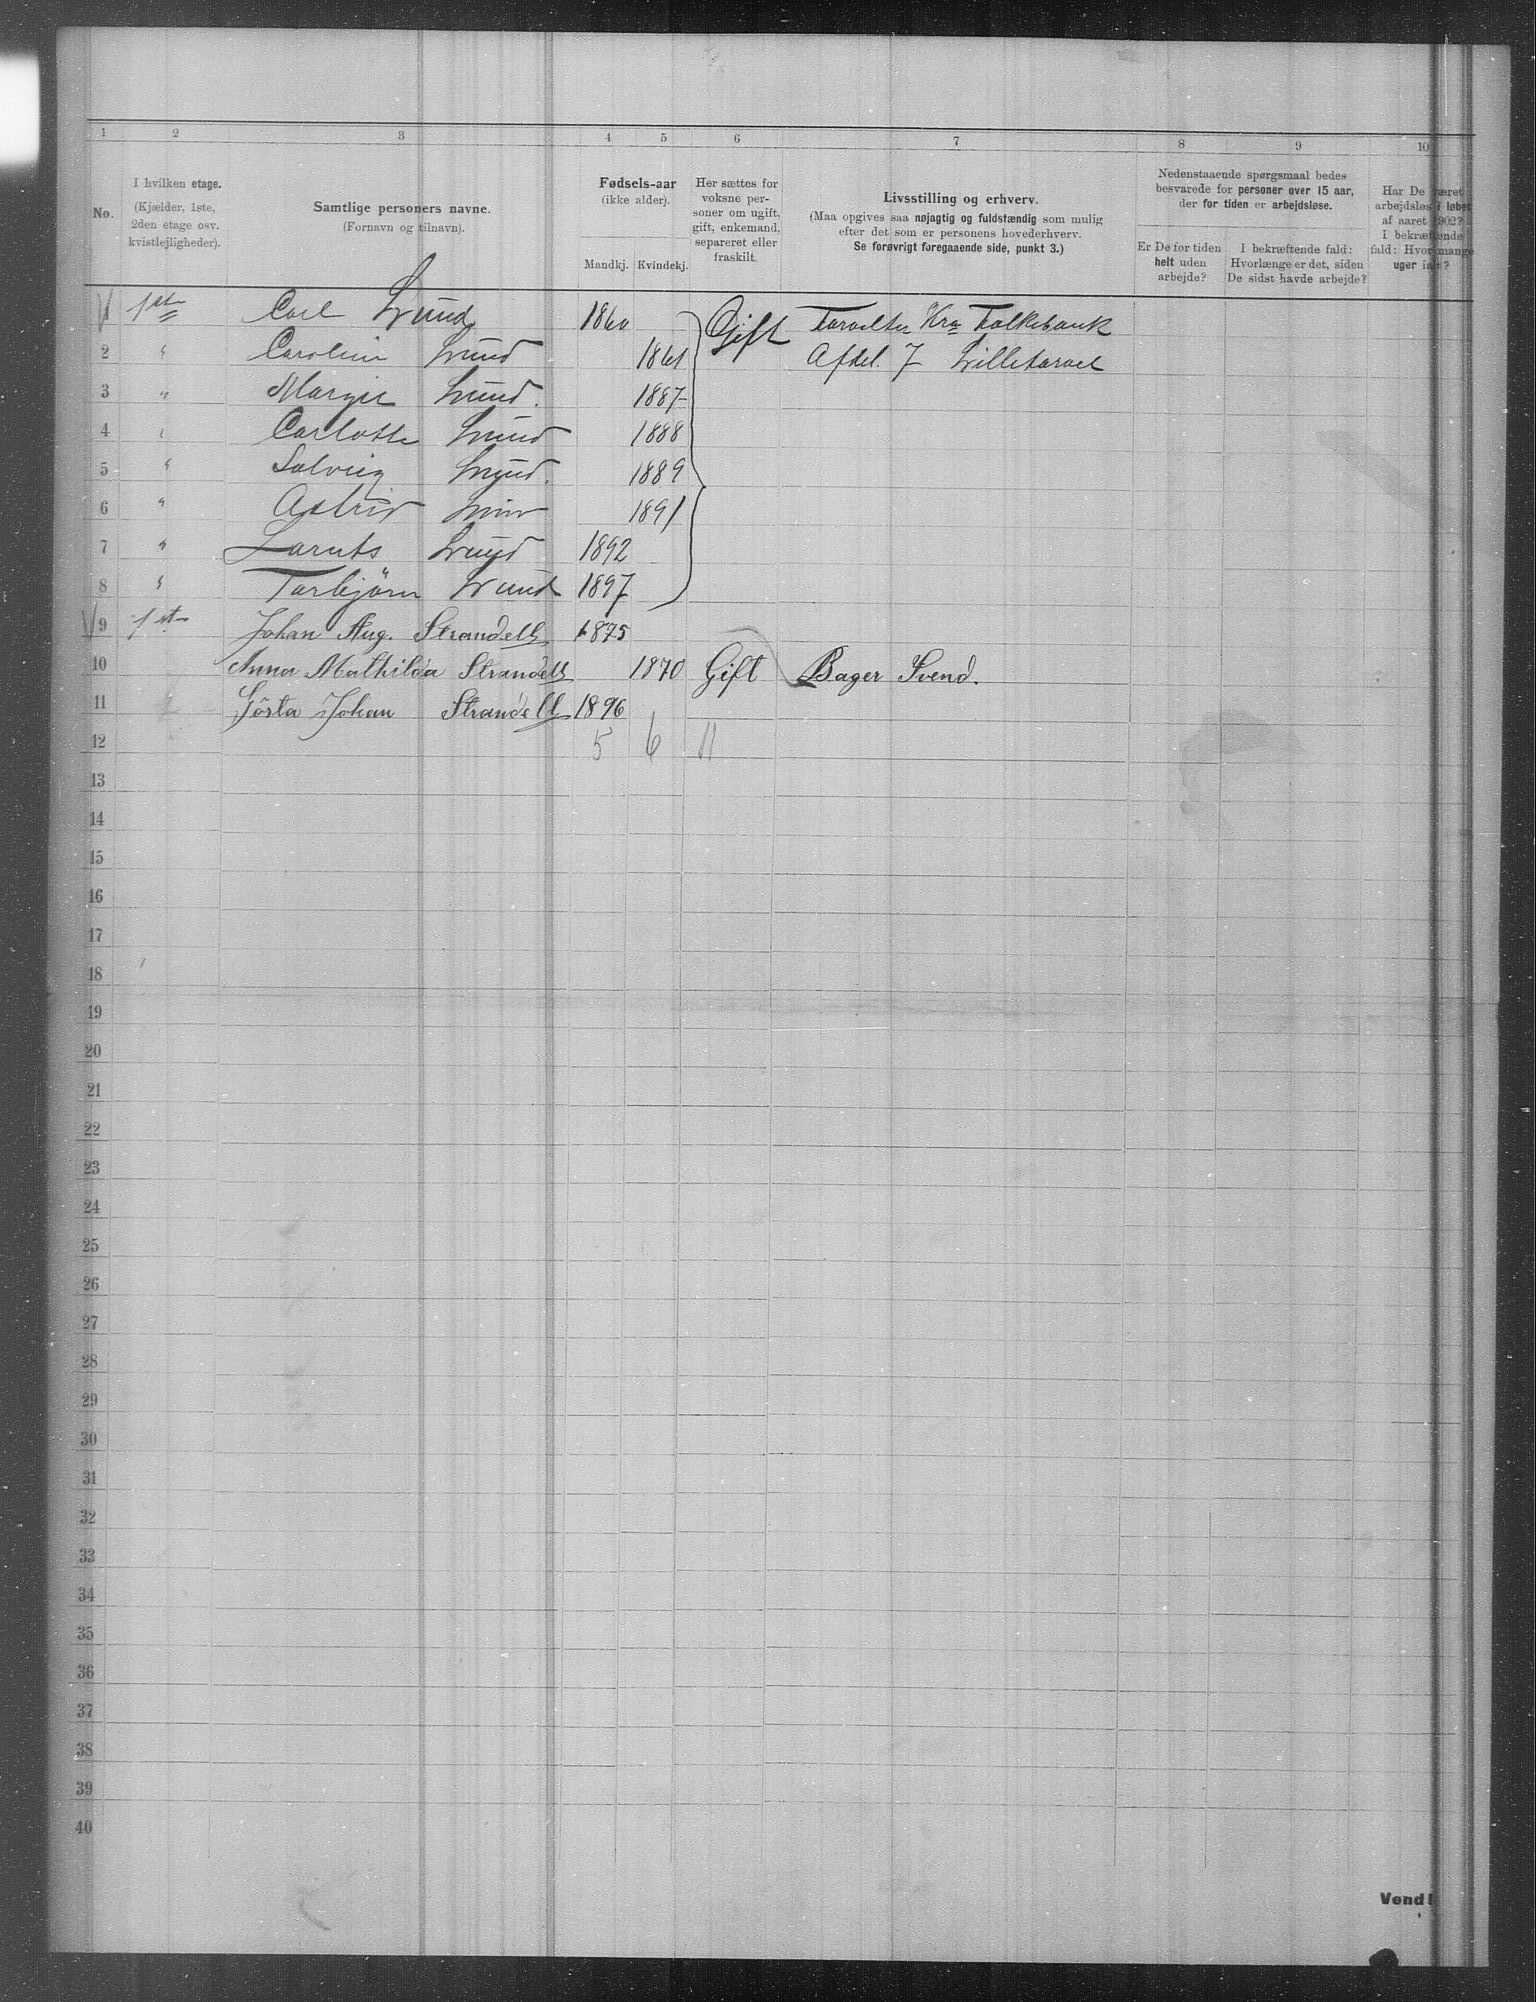 1 2 3 4 5 6 7 8 9 10
No. I hvilken etage. (Kjælder, 1ste, 2den etage osv. kvistlejligheder).
Samtlige personers navne. (Fornavn og tilnavn).
Fødsels-aar (ikke alder). Mandkj. Kvindekj.
Her sættes for voksne personer om ugift, gift, enkemand, separeret eller fraskilt.
Livsstilling og erhverv.
(Maa opgives saa nøjagtig og fuldstændig som mulig
efter det som er personens hovederhverv.
Se forøvrigt foregaaende side, punkt 3.)
Nedenstaaende spørgsmaal bedes
besvarede for personer over 15 aar,
der for tiden er arbejdsløse.
Er De for tiden helt uden arbejde?
I bekræftende fald: Hvorlænge er det, siden De sidst havde arbejde?
Har De været arbejdsløs i løbet af aaret 1902? I bekræftende fald: Hvor mange uger ialt?
1 1ste Carl Lund 1860 Gift Forvalter Kra Folkebank
2 " Caroline Lund 1861 Afdel. 7
3 " Margit Lund. 1887
4 " Carlotte Lund 1888
5 " Solveig Lund. 1889
6 " Astrid Lund 1891
7 " Lund 1892
8 " Torbjørn Lund 1897
9 1st Johan Aug. Strandell 1875
10 Anna Mathilda Strandell 1870 Gift Bager Svend.
11 Gösta Johan Strandell 1896
12 5 6 11
13
14
15
16
17
18
19
20
21
22
23
24
25
26
27
28
29
30
31
32
33
34
35
36
37
38
39
40
Vend!